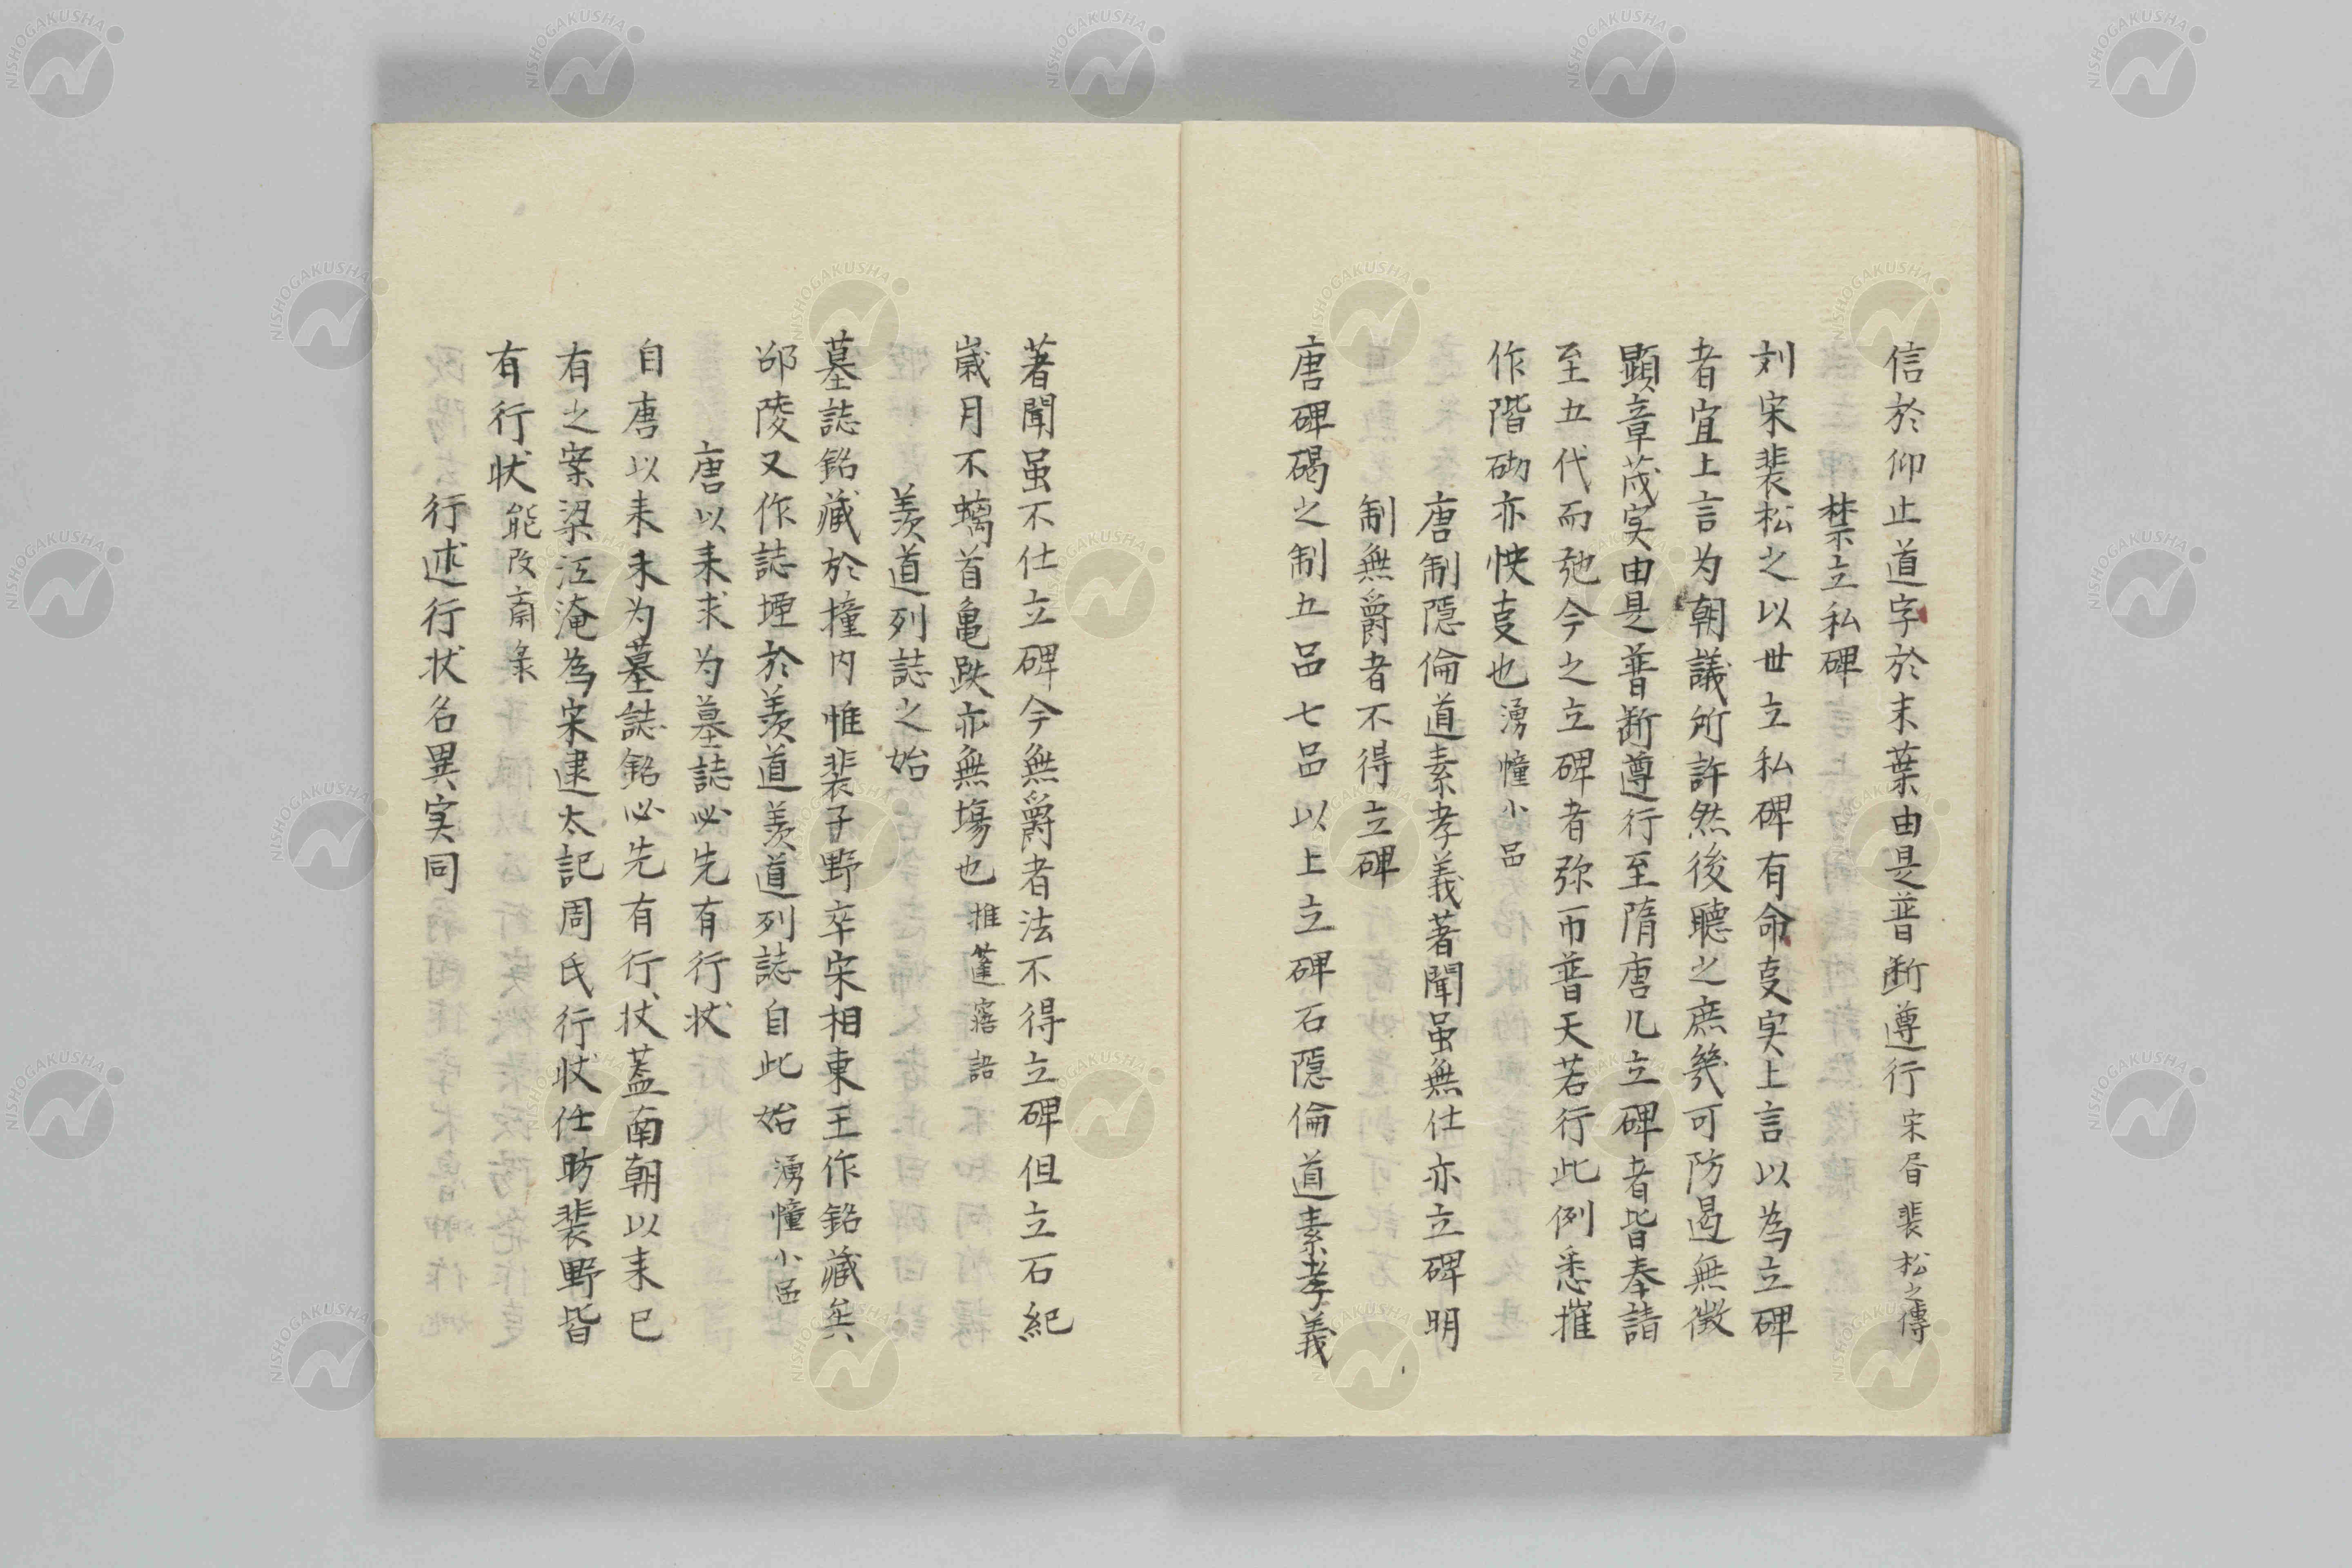 信於仰止道字於末葉由是普断遵行宋書裴松之傳
禁立私碑
刘宋裴松之以世立私碑有命事実上言以為立碑
者宜上言为朝議所許然後聽之庶幾可防遏無徴
顕章茂実由是普断遵行至隋唐凡立碑者皆奉請
至五代而弛今之立碑者弥而普天若行此例悉摧
作階砌亦快事也湧幢小品
唐制隠倫道素孝義著聞虽無仕亦立碑明
制無爵者不得立碑
唐碑碣之制五品七品以上立碑石隠倫道素孝義
著聞虽不仕立碑今無爵者法不得立碑但立石紀
歳月不螭首亀趺亦無塲也推蓬寤語
羨道列誌之始
墓誌銘藏於撞内惟裴子野卒宋相東王作銘藏矣
邵陵又作誌堙於羨道羨道列誌自此始湧幢小品
唐以来求为墓誌必先有行状
自唐以来未为墓誌銘必先有行状蓋南朝以来已
有之案梁江淹為宋建太記周氏行状任昉裴野皆
有行状能改斎彔
行述行状名異実同
NISHOGAKUSHA